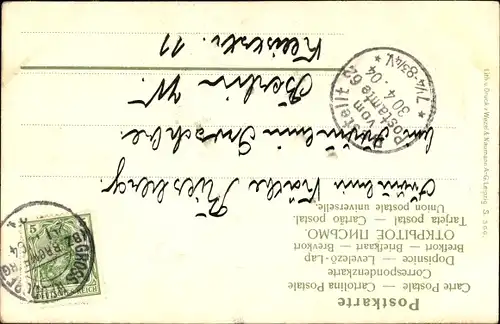 Postkarte
Carte Postale — Cartolina Postale
Correspondenzkarte
Dopisnice — Levelező-Lap
Brefkort — Briefkaart — Brevkort
ОТКРЫТОЕ ПИСЬМО.
Tarjeta postal. — Cartão postal.
Union postale universelle.
Fräulein Käthe
Fräulein
Berlin W.
Kleiststr. 11
Bestellt
vom
Postamte 62
30.4.04
7¼-8¾V.
5
REICH
GROSS NEUDORF
(BZ. BROMBERG)
Lith. u. Druck v. Wezel & Naumann A.-G. Leipzig. S.